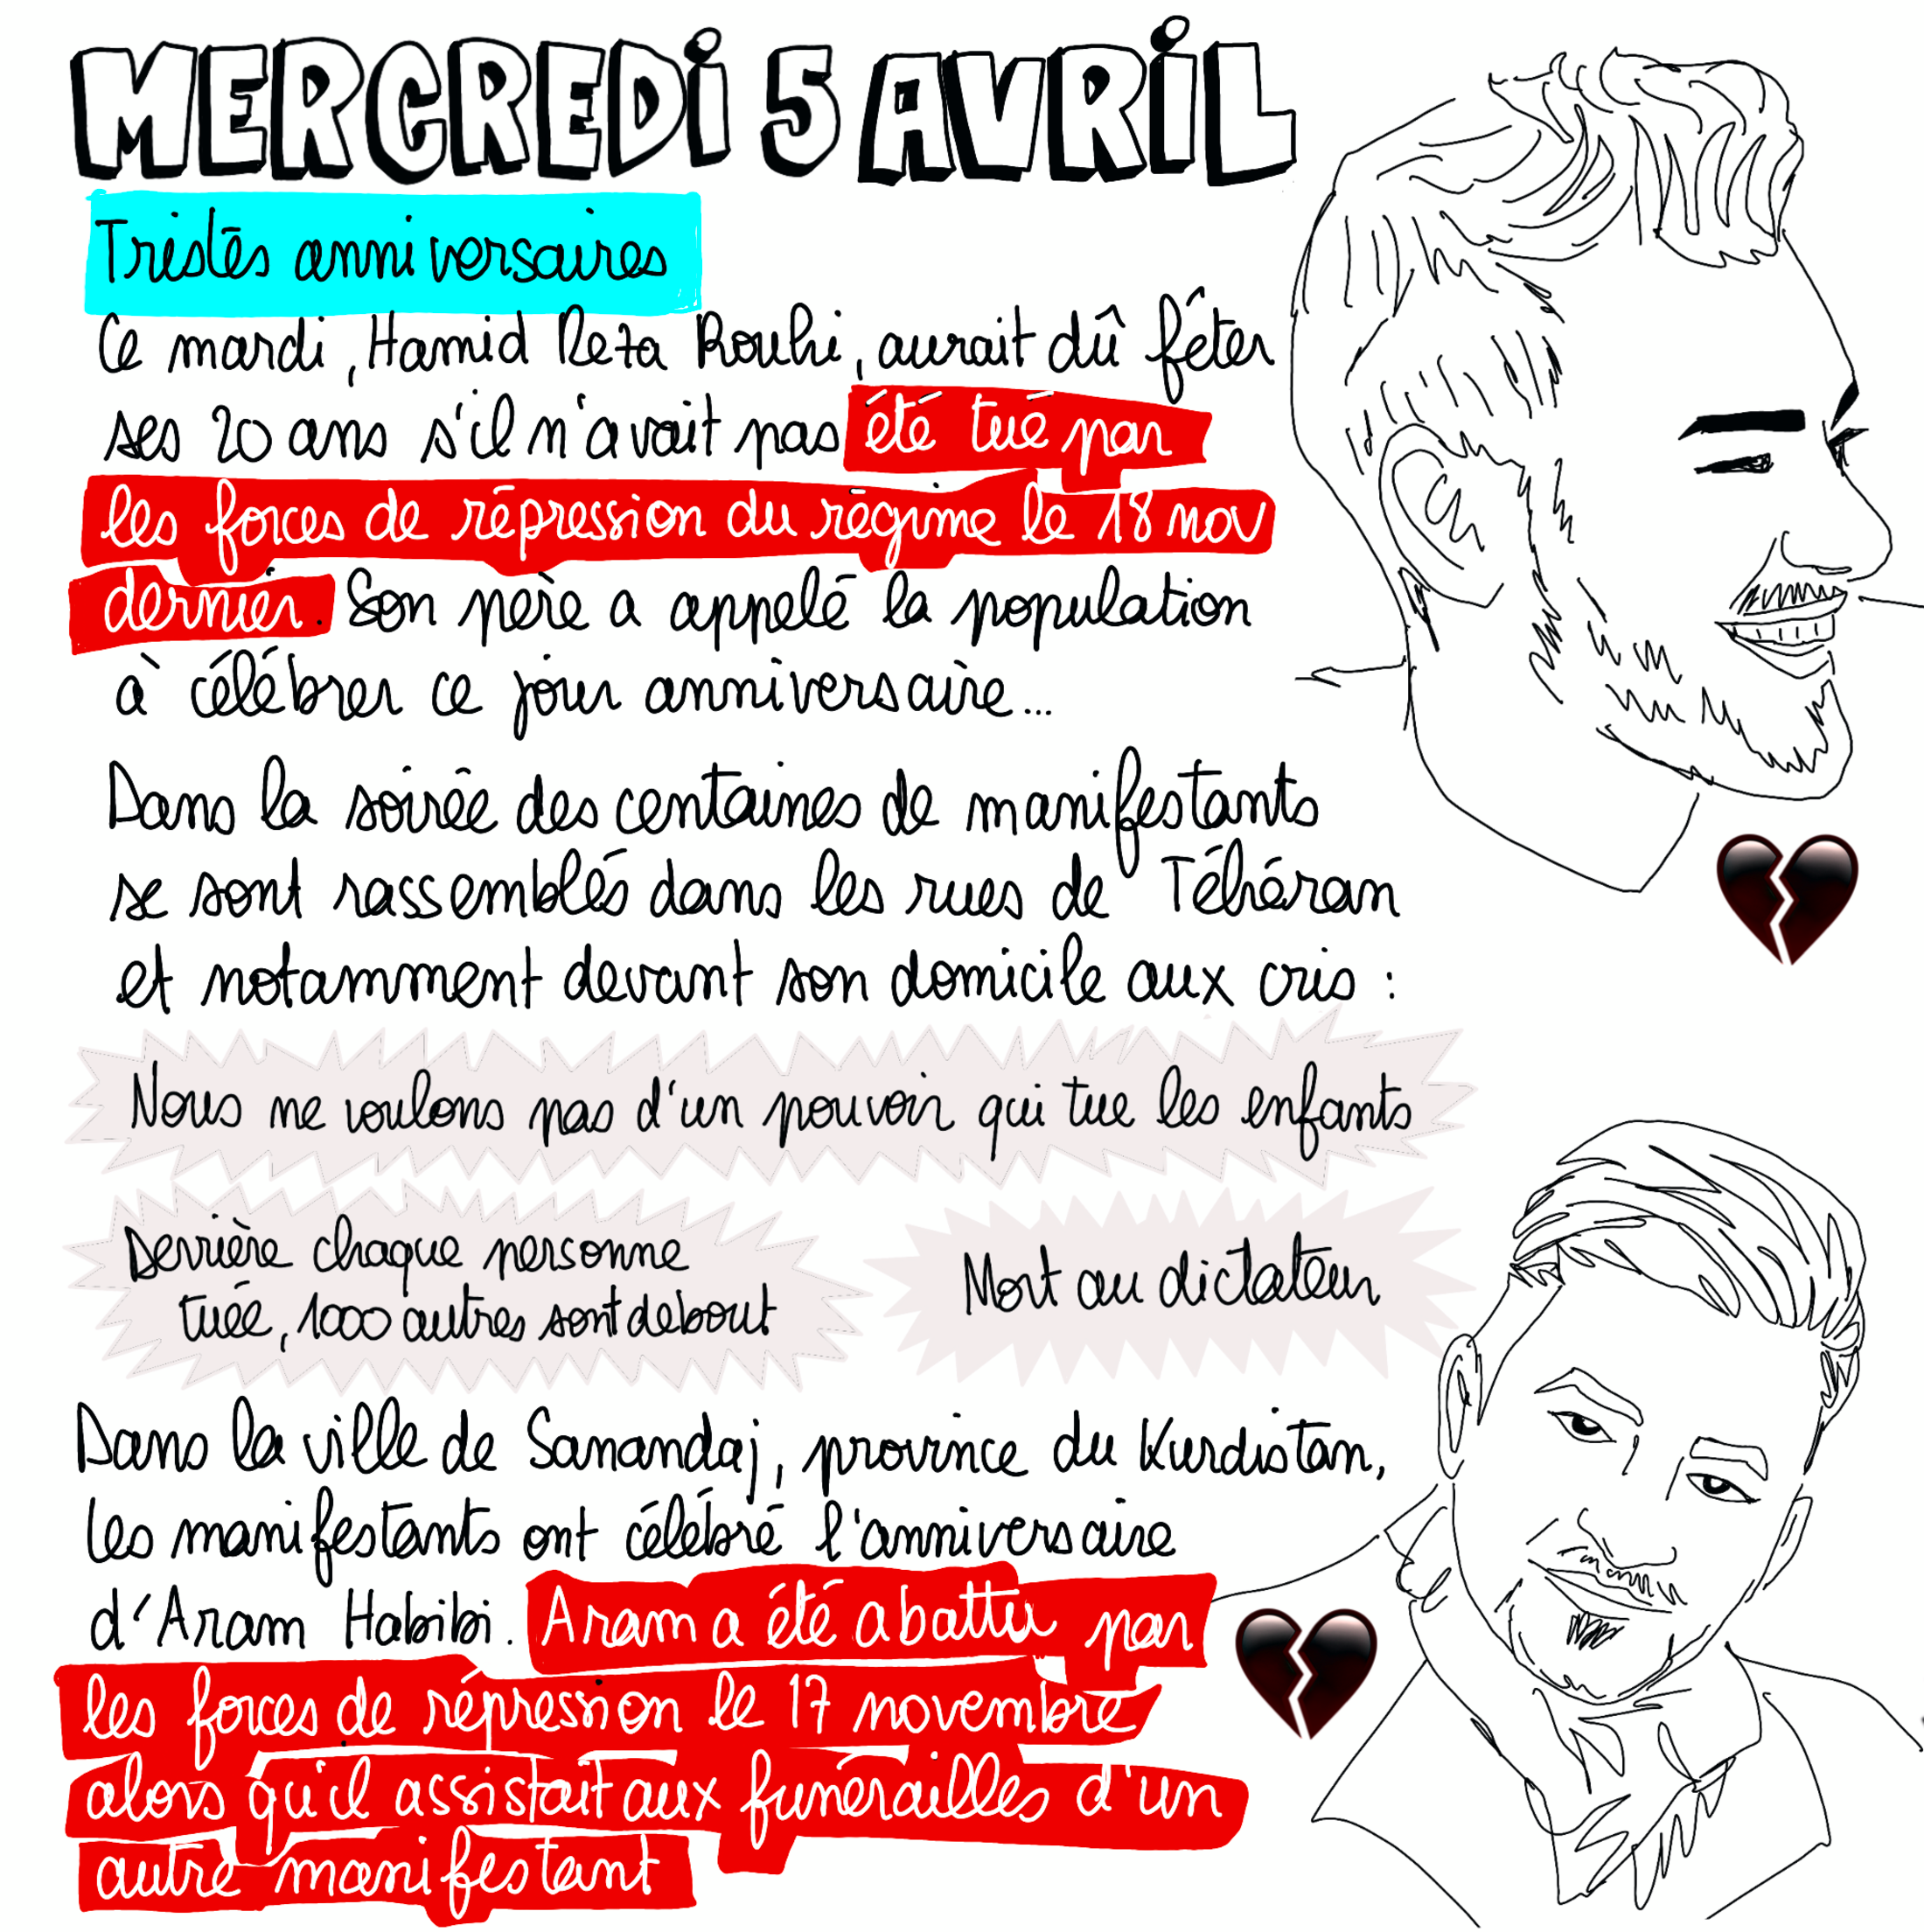 MERCREDI 5 AVRIL
Tristes anniversaires
Ce mardi, Hamid Reza Rouhi, aurait dû fêter
ses 20 ans s'il n'avait pas été tué par
les forces de répression du régime le 18 nov
dernier. Son père a appelé la population
à célébrer ce jour anniversaire...
Dans la soirée des centaines de manifestants
se sont rassemblés dans les rues de Téhéran
et notamment devant son domicile aux cris :
Nous ne voulons pas d'un pouvoir qui tue les enfants
Derrière chaque personne
tuée, 1000 autres sont debout
Mort au dictateur
Dans la ville de Sanandaj, province du Kurdistan,
les manifestants ont célébré l'anniversaire
d'Aram Habibi. Aram a été abattu par
les forces de répression le 17 novembre
alors qu'il assistait aux funérailles d'un
autre manifestant